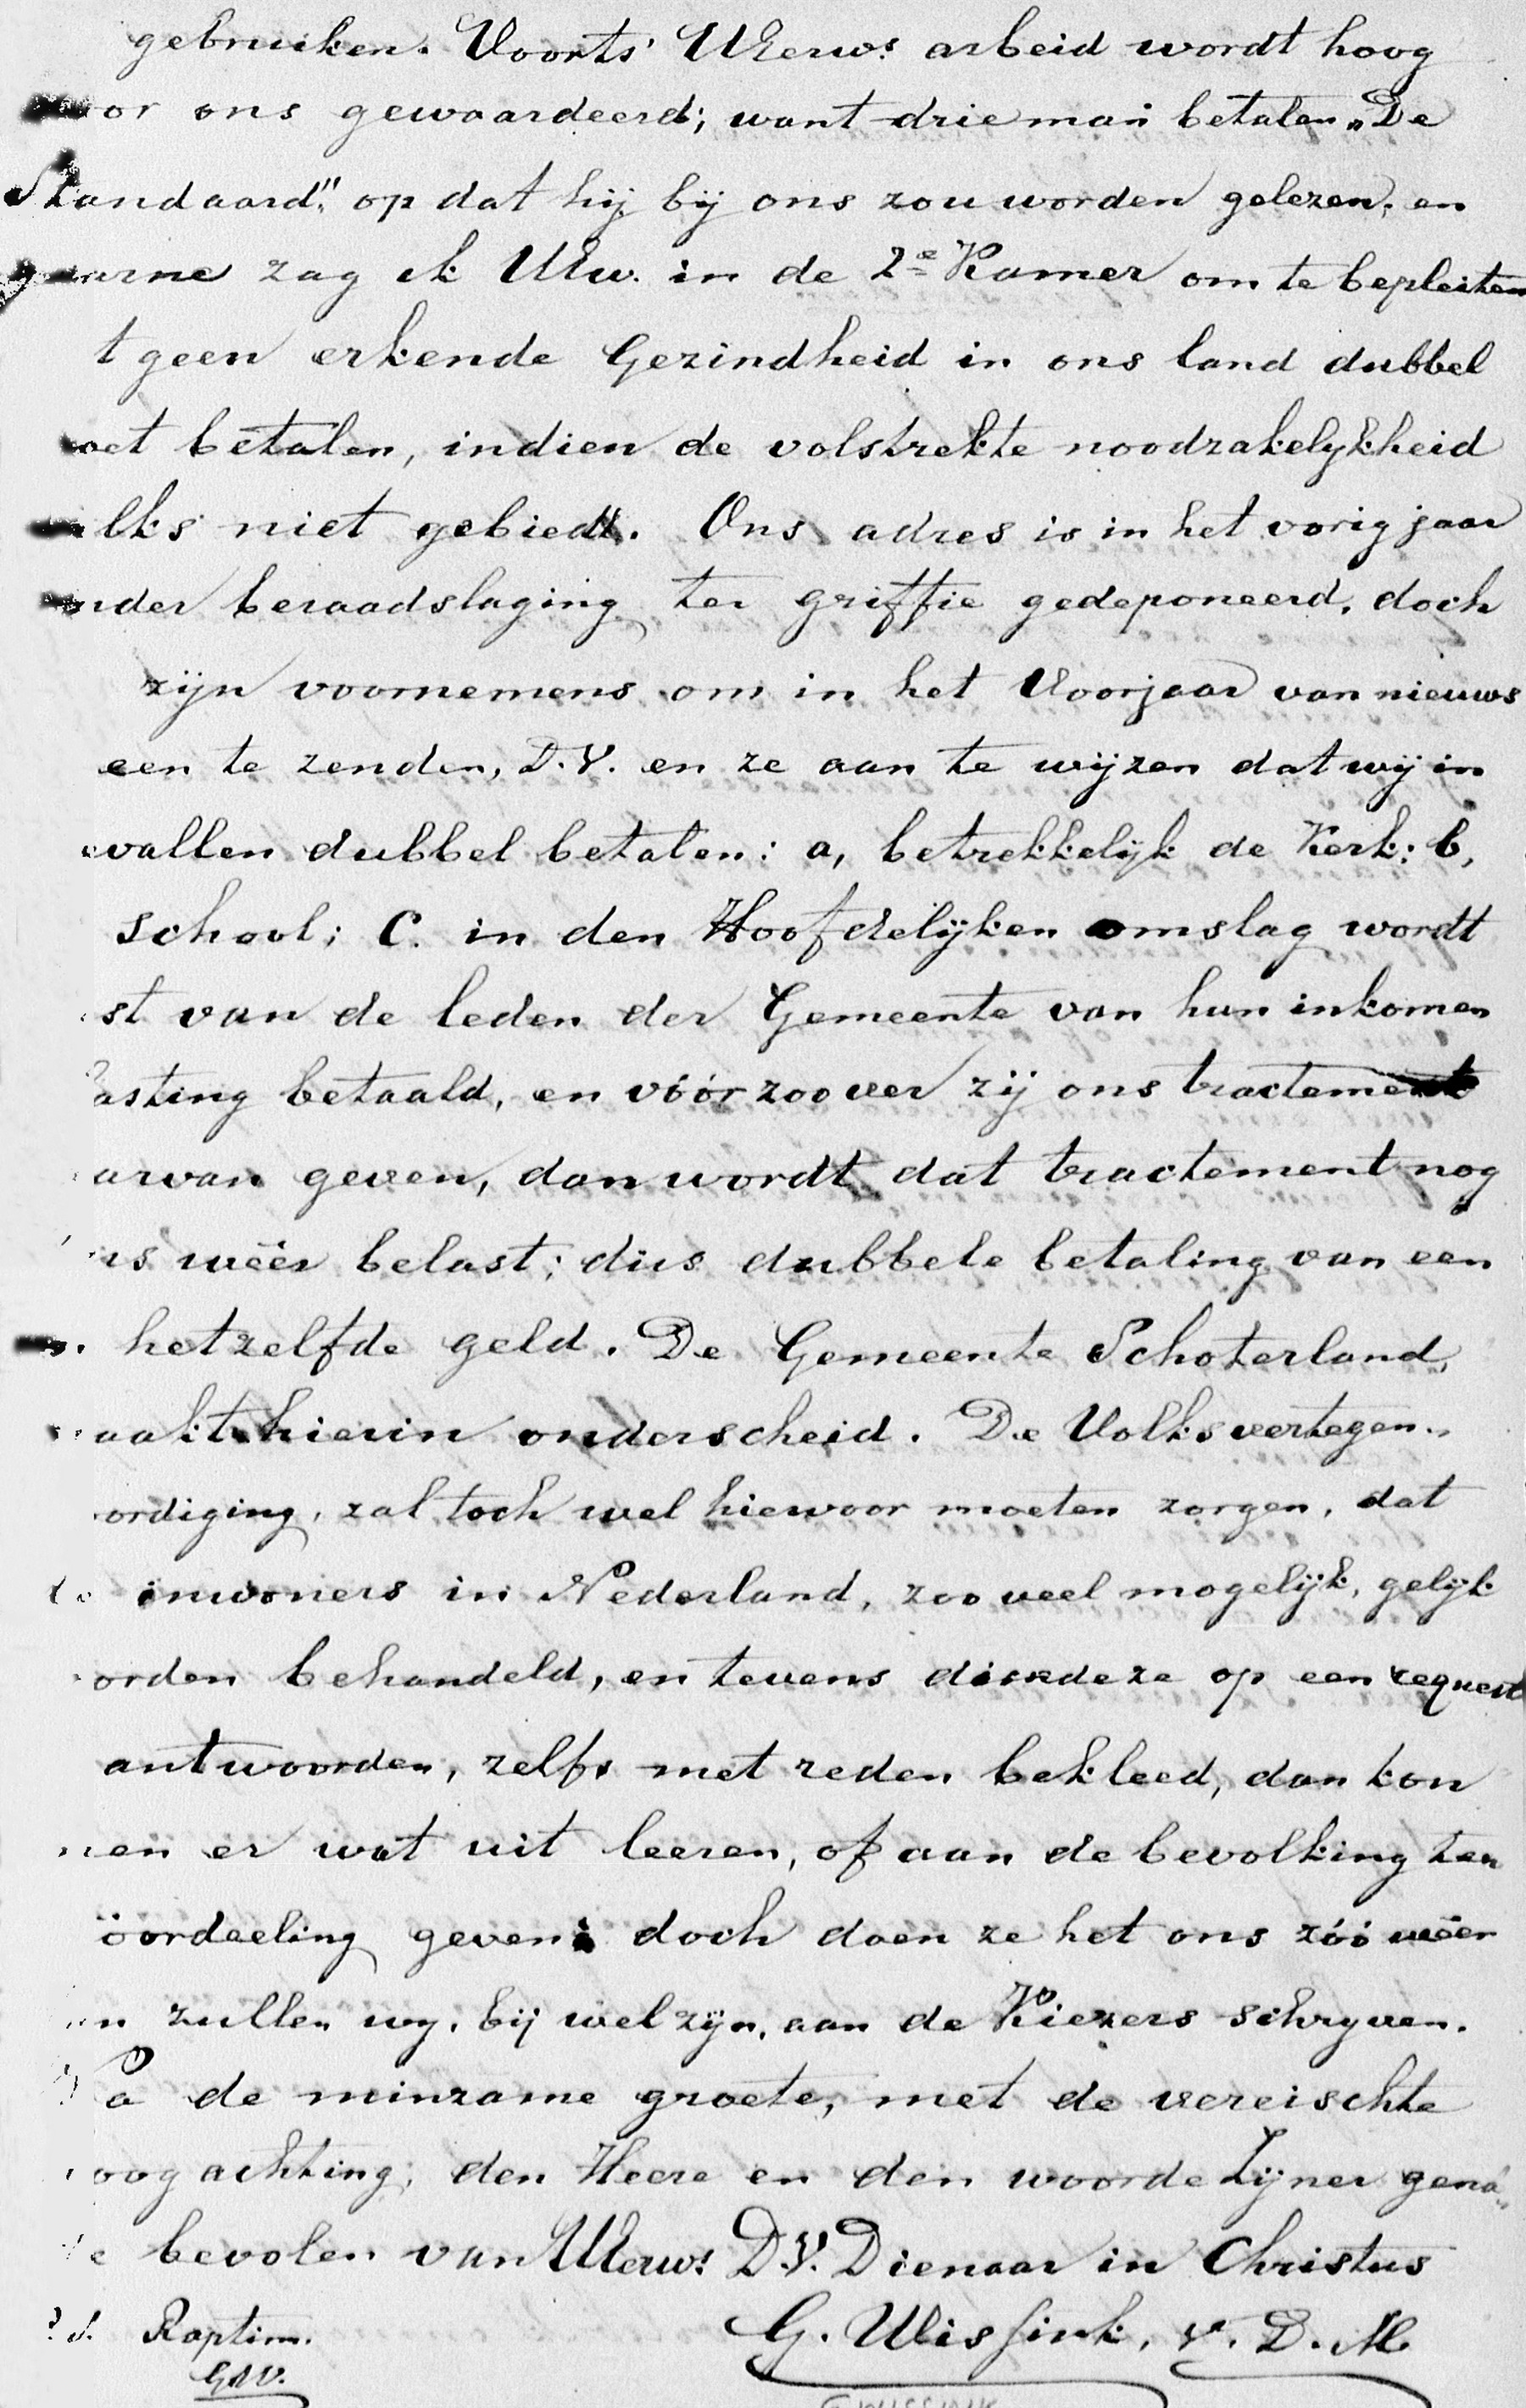 gebruiken. Voorts UEerws arbeid wordt hoog
oor ons gewaardeerd; want drie man betalen „De
Standaard", op dat hij bij ons zou worden gelezen, en
gaarne zag ik UEw. in de 2e Kamer om te bepleiten
t geen erkende Gezindheid in ons land dubbel
oet betalen, indien de volstrekte noodzakelykheid
lks niet gebiedt. Ons adres is in het vorig jaar
nder beraadslaging ter griffie gedeponeerd, doch
zijn voornemens om in het Voorjaar van nieuws
een te zenden, D.V. en ze aan te wijzen dat wij in
vallen dubbel betalen: a, betrekkelijk de Kerk: b,
school; C. in den Hoofdelijken omslag wordt
st van de leden der Gemeente van hun inkomen
asting betaald, en vóór zoover zij ons tractement
arvan geven, dan wordt dat tractement nog
ns wéér belast; dus dubbele betaling van een
hetzelfde geld. De Gemeente Schoterland,
aakt hierin onderscheid. De Volksvertegen„
ordiging, zal toch wel hiervoor moeten zorgen, dat
inwoners in Nederland, zooveel mogelijk, gelijk
orden behandeld, en tevens dien deze op een request
antwoorden, zelfs met reden bekleed, dan kon
nen er wat uit leeren, of aan de bevolking ter
öordeeling geven; doch doen ze het ons zóó wéér
n zullen wy, bij welzijn, aan de Kiezers schryven.
Na de minzame groete, met de vereischte
oogachting, den Heere en den woorde Zijner gená„
e bevolen van UEerws D.V. Dienaar in Christus
P.S. Raptim. G. Wissink, V. D. M
G.W.
G WISSINK